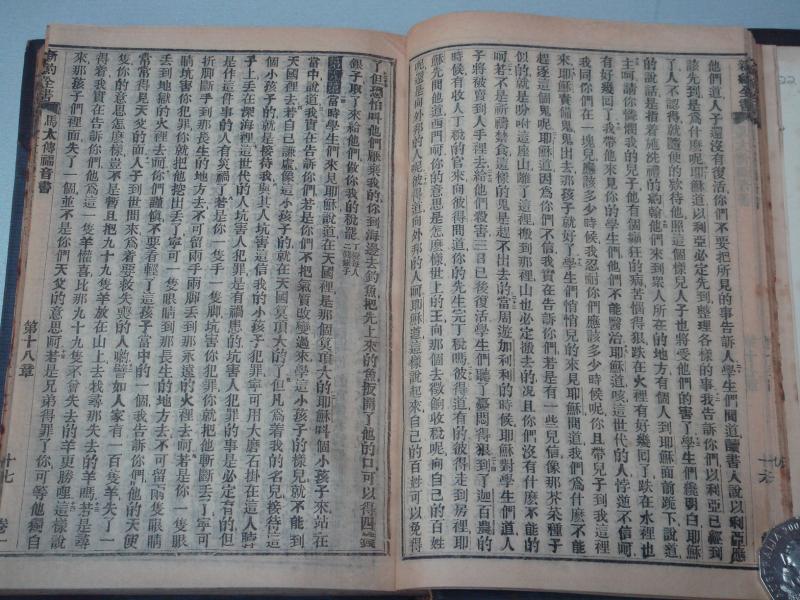 他們道人子還沒有復活你們不要把所見的事告訴人學生們問道讀書人說以利亞應
該先到是爲什麽呢耶穌道以利亞必定先到整理各樣的事我告訴你們以利亞已經到
了人不認得就隨便的欵待他照這個樣兒人子也將受他們的害了學生們纔明白耶穌
的說話是指着施洗禮的約翰他們來到衆人所在的地方有個人到耶穌面前跪下說道
主呵請你憐憫我的兒子他有個癲狂的病苦惱得狠跌在火裡有好幾回了跌在水裡也
有好幾回了我帶他來見你的學生們他們不能醫治耶穌道咳這世代的人悖逆不信呵
我同你們在一塊兒應該多少時候我忍耐你們應該多少時候呢你且帶兒子到我這裡
來耶穌責備鬼鬼出去那孩子就好了學生們悄悄兒的來見耶穌問道我們爲什麽不能
趕逐這個鬼呢耶穌道因爲你們不信我實在告訴你們若是有一些兒信像那芥菜種子
似的就是吩咐這座山離了這裡搬到那裡山也必定搬去的况且你們沒有什麽不能的
呵若不是祈禱禁食這樣的鬼是趕不出去的當周遊加利利的時候耶穌對學生們道人
子將被賣到人手裡去給他們殺害三日已後復活學生們聽了憂悶得狠到了迦百農的
時候收人丁稅的官來向彼得問道你的先生完丁稅嗎彼得道有的彼得走到房裡耶
穌先問他道西門呵你的意思是怎麽樣世上的王向那個去徵餉收稅呢向自己的百姓
呢還是向外邦的人呢彼得道向外邦的人呵耶穌道這樣說起來自己的百姓可以免得
了但恐怕叫他們厭棄我的你到海邊去釣魚把先上來的魚扳開了他的口可以得四錢
銀子取了來給他們做你我的稅罷
當時學生們來見耶穌說道在天國裡是那個莫頂大的耶穌叫個小孩子來站在
當中說道我實在告訴你們若是你們不把氣質改變過來學這小孩子的樣兒就不能到
天國裡去若自己謙虛像這小孩子的就在天國莫頂大的了但凡爲着我的名兒接待這
個小孩子的就是接待我與其人坑害這信我的小孩子犯罪寧可用大磨石掛在這人脖
子上丟在深海裡這世代的人坑害人犯罪是有禍患的坑害人犯罪的事是必定有的但
是作這件事的人有災禍了若是你一隻手一隻脚坑害你犯罪你就把他斬斷丟了寧可
折脚斷手到那長生的地方去不可留兩手兩脚丟到那永遠的火裡去呵若是你一隻眼
睛坑害你犯罪你就把他挖出丟了寧可一隻眼睛到那長生的地方去不可留兩隻眼睛
丟到地獄的火裡去呵你們謹慎不要看輕了這孩子當中的一個我告訴你們他的天使
常常得見天父的面人子到世間來爲着要救失喪的人喲譬如人家有一百隻羊失了一
隻你的意思怎麽樣豈不是暫且把九十九隻羊放在山上去找尋那失去的羊嗎若是尋
得着我實在告訴你們他爲這一隻羊懽喜比那九十九隻不曾失去的羊更勝哩這樣看
來那孩子們裡面失了一個並不是你們天父的意思呵若是兄弟得罪了你可等他獨自
新約全書 馬太傳福音書
第十八章
十七 卷一